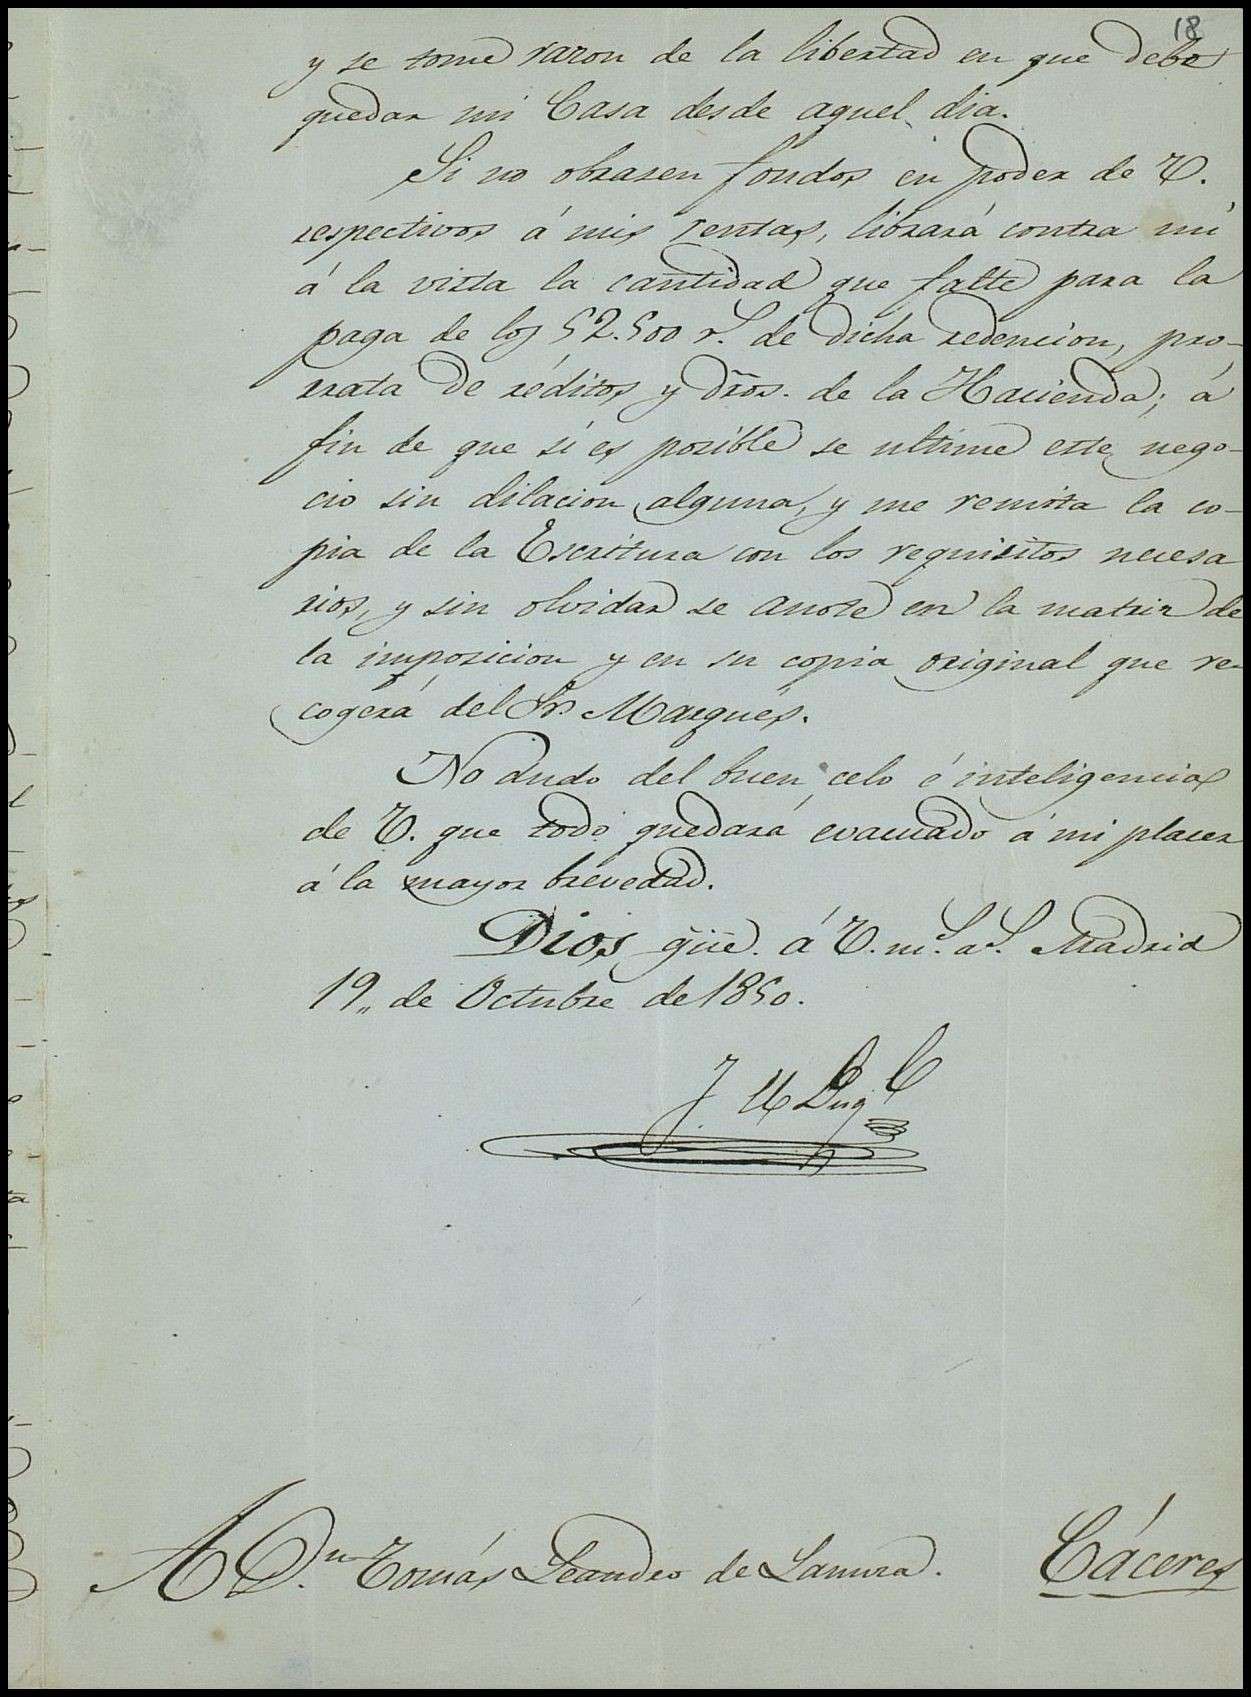 18
y se tome razon de la libertad en que debe
quedar mi Casa desde aquel dia.
Si no obrasen fondos en poder de V.
respectivos á mis rentas, librará contra mi
á la vista la cantidad que falte para la
paga de los 52.500 r.s de dicha redencion, pro-
rrata de réditos y dr̃os. de la Hacienda; á
fin de que si es posible se ultime este nego-
cio sin dilacion alguna, y me remita la co-
pia de la Escritura con los requisitos necesa
rios, y sin olvidar se anote en la matriz de
la imposicion y en su copia original que re-
cogerá del Sr. Marqués.
No dudo del buen celo é inteligencia
de V. que todo quedará evacuado á mi placer
á la mayor brevedad.
Dios güe. á V. m.s a.s Madrid
19,, de Octubre de 1850.
A D.n Tomás Leandro de Lamira. Cáceres